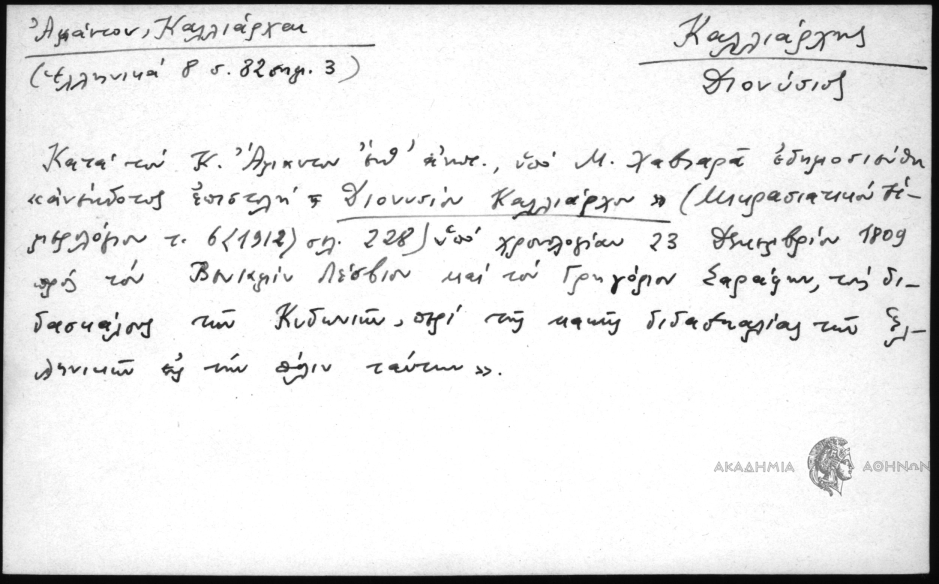 Ἀμάντου, Καλλιάρχαι
(Ἑλληνικά 8 σ. 82 σημ. 3)
Καλλιάρχης
Διονύσιος
Κατά τόν Κ. Ἄμαντον ἔνθ' ἀνωτ., ὑπό Μ. Χαβιαρᾶ ἐδημοσιεύθη
«ἀνέκδοτος ἐπιστολή Διονυσίου Καλλιάρχου» (Μικρασιατικόν Ἡ-
μερολόγιον τ. 6 (1912) σελ. 228) ὑπό χρονολογίαν 23 Δεκεμβρίου 1809
πρός τόν Βενιαμίν Λέσβιον καί τόν Γρηγόριον Σαράφην, τούς δι-
δασκάλους τῶν Κυδωνιῶν, περί τῆς κακῆς διδασκαλίας τῶν Ἑλ-
ληνικῶν εἰς τήν πόλιν ταύτην».
ΑΚΑΔΗΜΙΑ ΑΘΗΝΩΝ